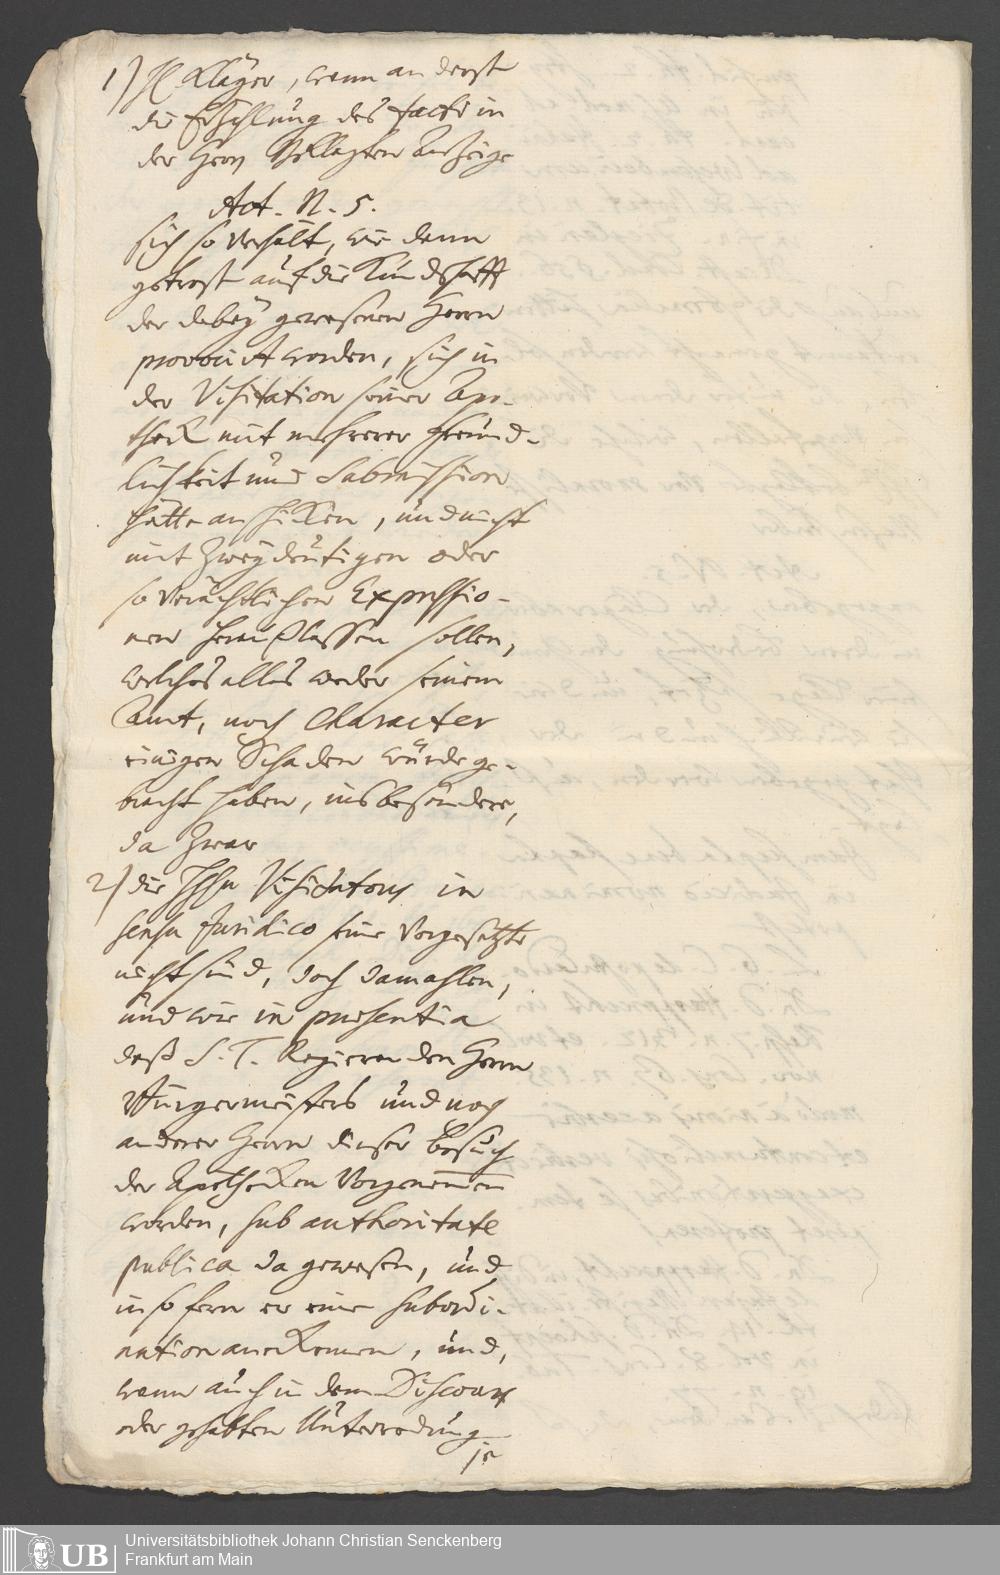 1) H. Kläger, wann anderst
die Erzehlung des facti in
der Herrn Beklagten Anzeige
Act. N. 5.
sich so verhält, wie dann
getrost auf die Kundschafft
der dabey gewesenen Herrn
provocirt worden, sich in
der Visitation seiner Apo-
theck mit mehrerer Freund-
lichkeit und Submission
hätte anschicken, und nicht
mit zweydeutigen oder
so verächtlichen Expressio-
nen herauslassen sollen,
welches alles weder seinem
Amt, noch Character
einigen Schaden würde ge-
bracht haben, insbesondere,
da zwar
2) die Hhn Visitatores in
sensu Juridico seine Vorgesetzte
nicht sind, doch damahlen,
und wie in praesentia
deß S. T. Regierenden Herrn
Burgermeisters und noch
anderer Herrn dieser besuch
der Apothecken vorgenommen
worden, sub authoritate
publica da gewesen, und
in so fern er eine subordi-
nation anerkennen, und,
wann auch in dem Discours
oder gehabten Unterredung
je
UB
Universitätsbibliothek Johann Christian Senckenberg
Frankfurt am Main